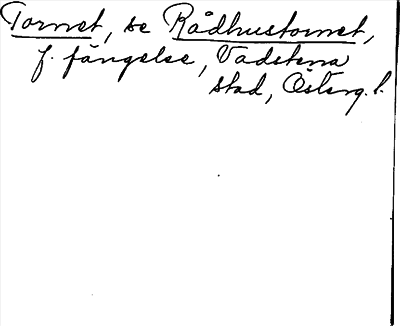 Tornet, se Rådhustornet,
f. fängelse, Vadstena
stad, Österg. l.